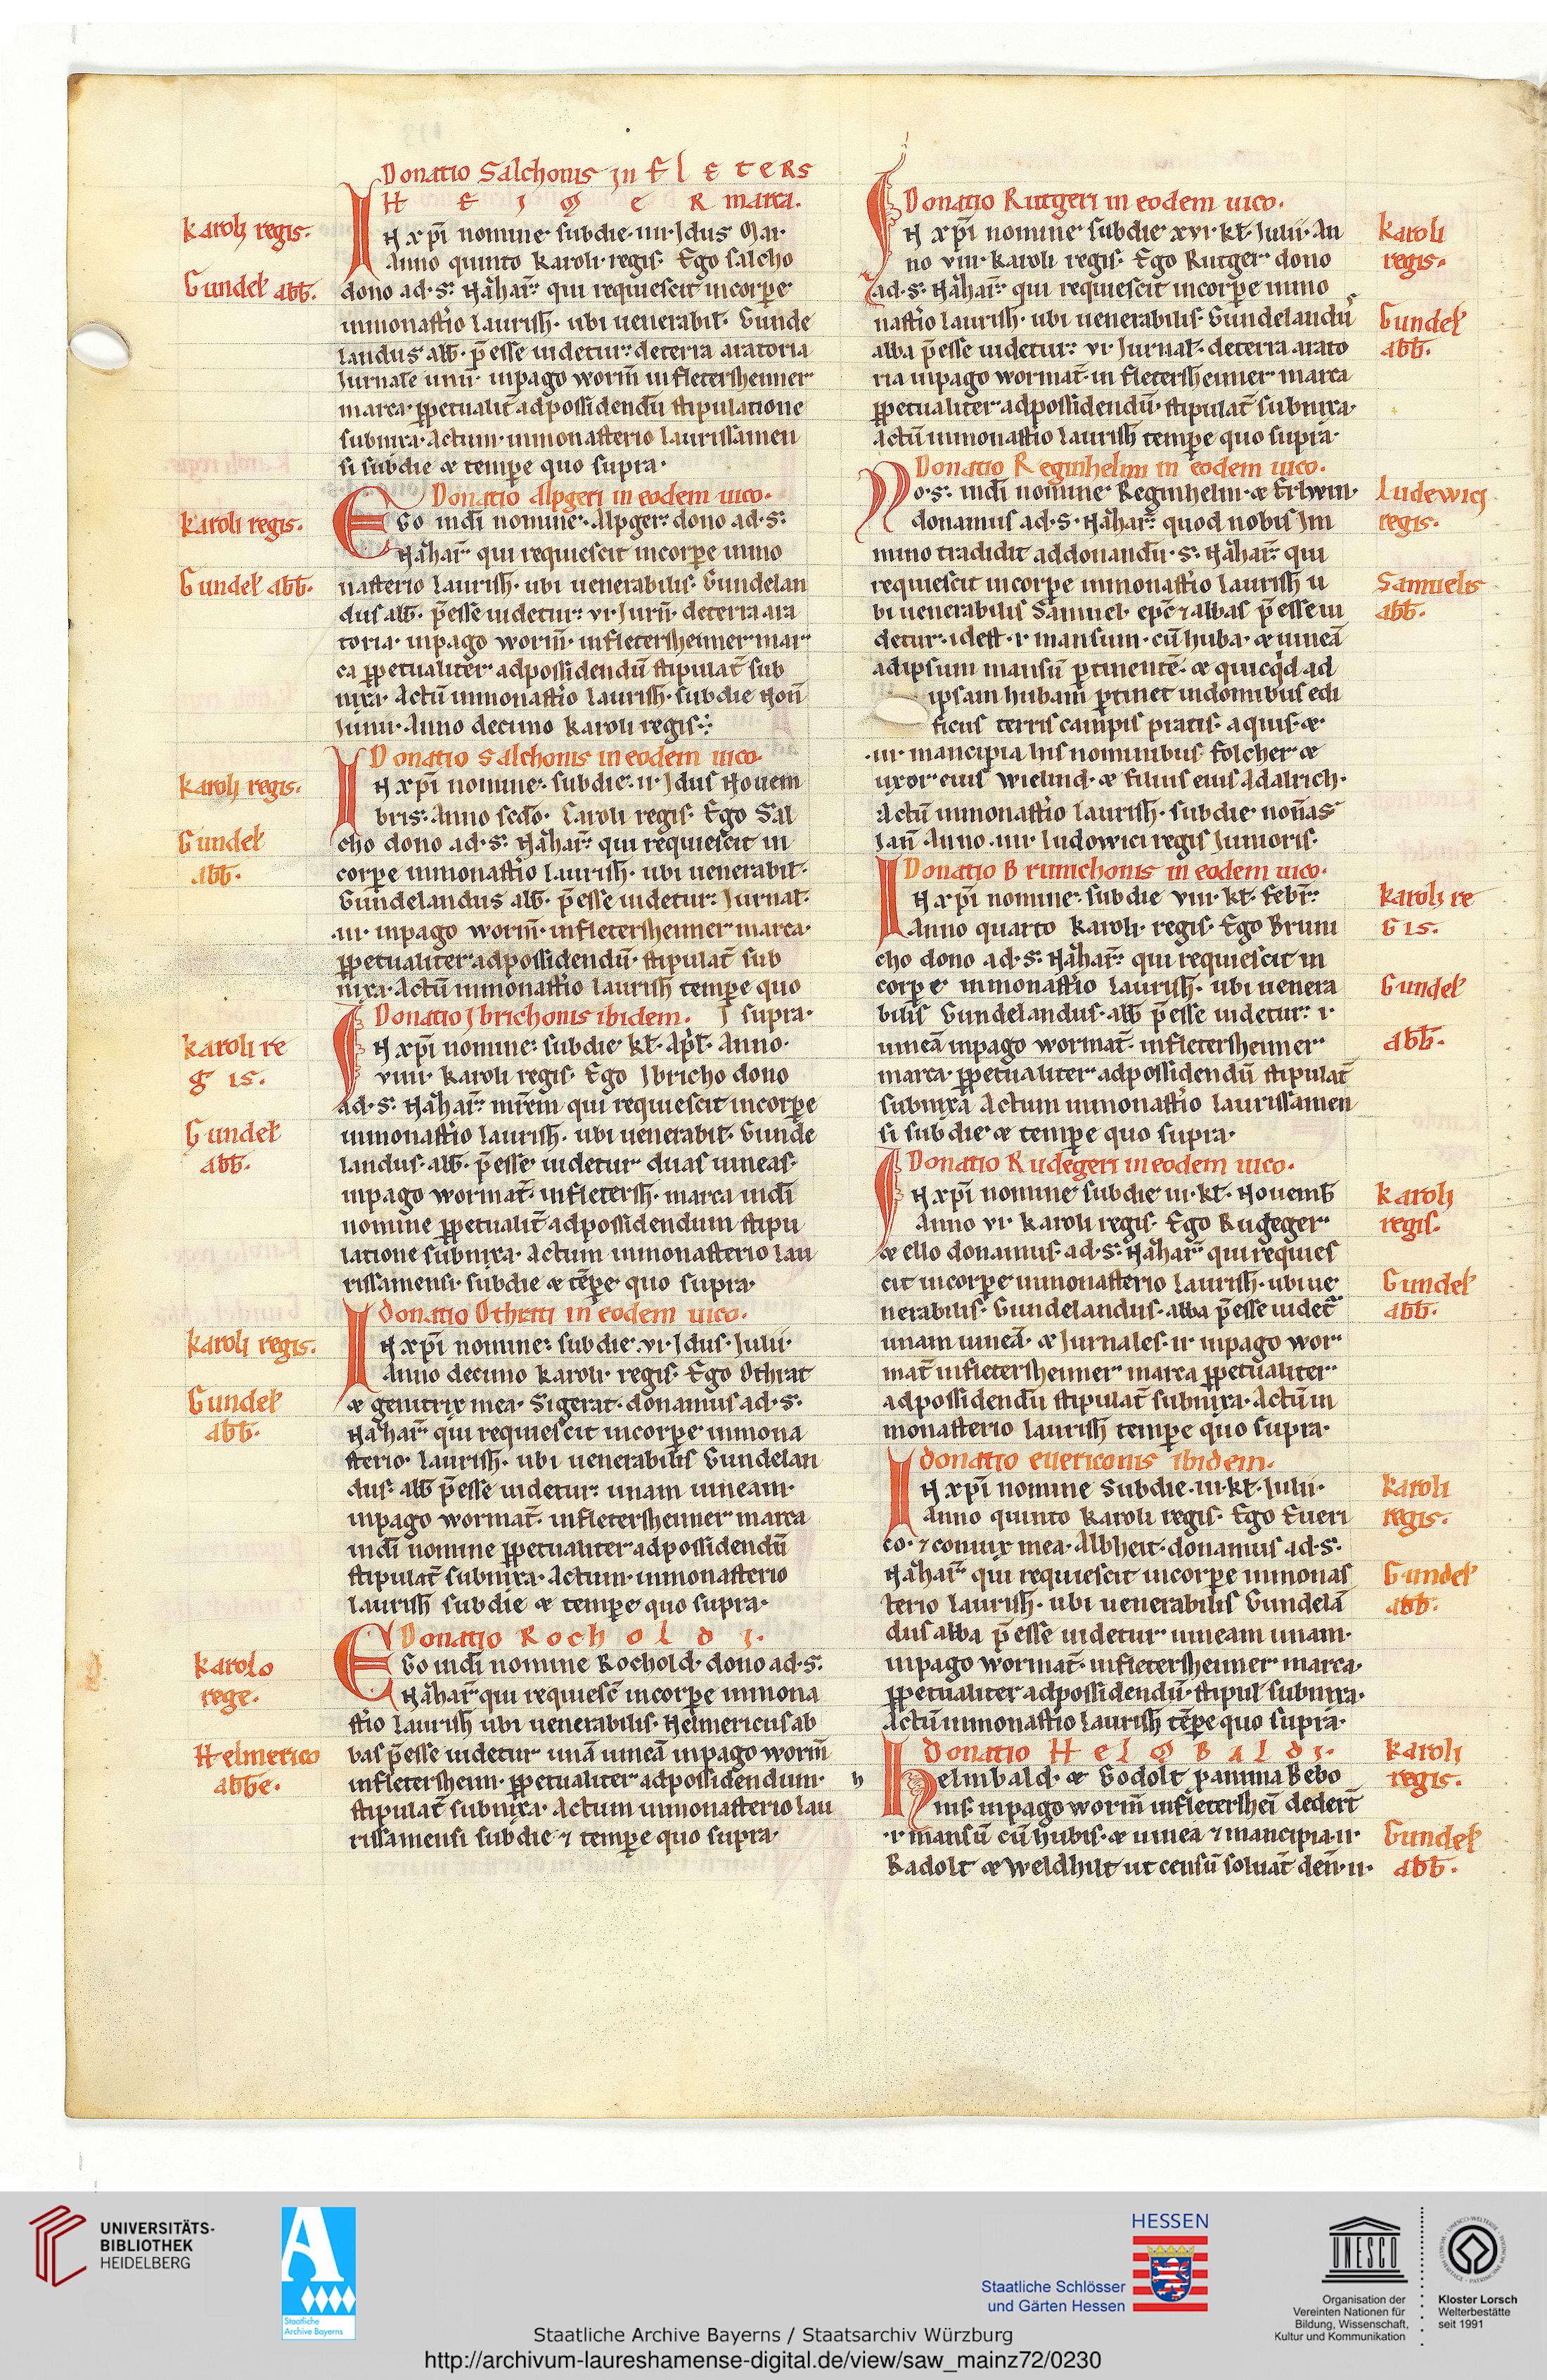 Donatio Salchonis in Fleters
heimer marca.
Karoli regis.
IN xpi nomine sub die .iiii. Idus Mar.
Anno quinto Karoli regis. Ego Salcho
Gundel abb.
dono ad .s. Naharˉ qui requiescit in corpe
in monastio laurish. ubi venerabil. Gunde
landus abb. pesse videtur: de terra aratoria
Iurnale unu in pago worm in fletersheimer
marca. ppetualit ad possidendu stipulatione
subnixa. Actum in monasterio laurissamen
si sub die et tempe quo supra.
Donatio Alpgeri in eodem uico.
Karoli regis.
Ego in di nomine. Alpger dono ad .s.
Nahar qui requiescit in corpe in mo
Gundel abb.
nasterio laurish. ubi venerabilis. Gundelan
dus abb. pesse videtur: vi Iurn. de terra ara
toria. in pago worm. in fletersheimer mar
ca ppetualiter ad possidendu stipulat sub
nixa. Actu in monastio laurish. sub die Non
Iunii. Anno decimo Karoli regis.
Donatio Salchonis in eodem uico.
Karoli regis.
IN xpi nomine. sub die .ii. Idus Novem
bris. Anno scdo. Caroli regis. Ego Sal
Gundel
cho dono ad .s. Nahar qui requiescit in
abb.
corpe in monastio laurish. ubi venerabil.
Gundelandus abb. pesse videtur: Iurnal.
.iii. in pago worm. in fletersheimer marca.
ppetualiter ad possidendu. stipulat sub
nixa. Actu in monastio laurish tempe quo
Donatio Ibrichonis ibidem. supra.
Karoli re
IN xpi nomine: sub die kl. Apl. Anno.
gis.
viiii. Karoli regis. Ego Ibricho dono
ad .s. Nahar mrem qui requiescit in corpe
Gundel
in monastio laurish. ubi venerabil. Gunde
abb.
landus. abb. pesse videtur duas vineas.
in pago wormat. in fletersh. marca in di
nomine ppetualit ad possidendum stipu
latione subnixa. Actum in monasterio lau
rissamensi. sub die et tepe quo supra.
Donatio Othrati in eodem uico.
Karoli regis.
IN xpi nomine: sub die .vi. Idus. Iulii.
Anno decimo Karoli. regis. Ego Othrat
Gundel
et genitrix mea. Sigerat. donamus ad .s.
abb.
Nahar qui requiescit in corpe in mona
sterio. laurish. ubi venerabilis Gundelan
dus. abb pesse videtur: unam vineam.
in pago wormat. in fletersheimer marca
in di nomine ppetualiter ad possidendu
stipulat subnixa. Actum. in monasterio
laurish sub die et tempe quo supra.
Donatio Rocholdi.
Karolo
Ego in di nomine Rochold. dono ad .s.
rege.
Nahar qui requiesc in corpe in mona
stio laurish ubi venerabilis. Helmericus ab
Helmerico
bas pesse videtur una vinea in pago worm
abbe.
in fletersheim. ppetualiter ad possidendum.
stipulat subnixa. Actum in monasterio lau
rissamensi sub die & tempe quo supra.
Donatio Rutgeri in eodem uico.
IN xpi nomine sub die xvi. kl. Iulii. An
Karoli
no viii. Karoli regis. Ego Rutger dono
regis.
ad .s. Nahar qui requiescit in corpe in mo
nastio laurish. ubi venerabilis. Gundelandu
Gundel
abba pesse videtur: vi. Iurnal. de terra arato
abb.
ria in pago wormat. in fletersheimer marca
ppetualiter ad possidendu. stipulat subnixa.
Actu in monastio laurish tempe quo supra.
Donatio Reginhelmi in eodem uico.
Nos. in di nomine Reginhelm. et Erlwin.
Ludewici
donamus ad .s. Nahar quod nobis Im
regis.
mino tradidit ad donandu. s. Nahar qui
requiescit in corpe in monastio laurish u
Samuelis
bi venerabilis Samuel. epc & abbas pesse vi
abb.
detur. id est. i. mansum. cu huba. et vinea
ad ipsum mansu ptinente. et quicqd ad
ipsam hubam ptinet in domibus edi
ficiis terris campis pratis. aquis. et
.iii. mancipia his nominibus Folcher et
uxor eius Wielind. et filius eius Adalrich.
Actu in monastio laurish. sub die nonas
Ian. Anno .iiii. Ludowici regis Iunioris.
Donatio Brunichonis in eodem uico.
IN xpi nomine: sub die viii. kl. Febr.
Karoli re
Anno quarto Karoli. regis. Ego Bruni
gis.
cho dono ad .s. Nahar qui requiescit in
corpe in monastio laurish. ubi venera
Gundel
bilis Gundelandus. abb pesse videtur: i.
vinea in pago wormat. in fletersheimer
abb.
marca. ppetualiter ad possidendu stipulat
subnixa Actum in monastio laurissamen
si sub die et tempe quo supra.
Donatio Rudegeri in eodem uico.
IN xpi nomine sub die iii. kl. Novemb
Karoli
Anno vi. Karoli regis. Ego Rudeger
regis.
et ello donamus. ad .s. Nahar qui requies
cit in corpe in monasterio laurish. ubi ve
Gundel
nerabilis. Gundelandus. abba pesse videt
abb.
unam vinea. et Iurnales. ii. in pago wor
mat in fletersheimer marca ppetualiter
ad possidendu stipulat subnixa. Actu in
monasterio laurish tempe quo supra.
Donatio Evericonis ibidem.
IN xpi nomine sub die .iii. kl. Iulii.
Karoli
Anno quinto Karoli regis. Ego Everi
regis.
co. & coniux mea. Albheit. donamus ad .s.
Nahar qui requiescit in corpe in monas
Gundel
terio laurish. ubi venerabilis Gundela
abb.
dus abba pesse videtur vineam unam.
in pago wormat. in fletersheimer marca.
ppetualiter ad possidendu. stipul subnixa.
Actu in monastio laurish tepe quo supra.
Donatio Helmbaldi.
Karoli
Helmbald. et Godolt panima Bebo
regis.
nis. in pago worm in fletershei dedert
.i. mansu cu hubis. et vinea & mancipia .ii.
Gundel
Radolt et Weldhilt ut censu solvat den. ii.
abb.
UNIVERSITÄTS-
BIBLIOTHEK
HEIDELBERG
Staatliche
Archive Bayerns
HESSEN
Staatliche Schlösser
und Gärten Hessen
UNESCO
Organisation der
Vereinten Nationen für
Bildung, Wissenschaft,
Kultur und Kommunikation
Kloster Lorsch
Welterbestätte
seit 1991
Staatliche Archive Bayerns / Staatsarchiv Würzburg
http://archivum-laureshamense-digital.de/view/saw_mainz72/0230